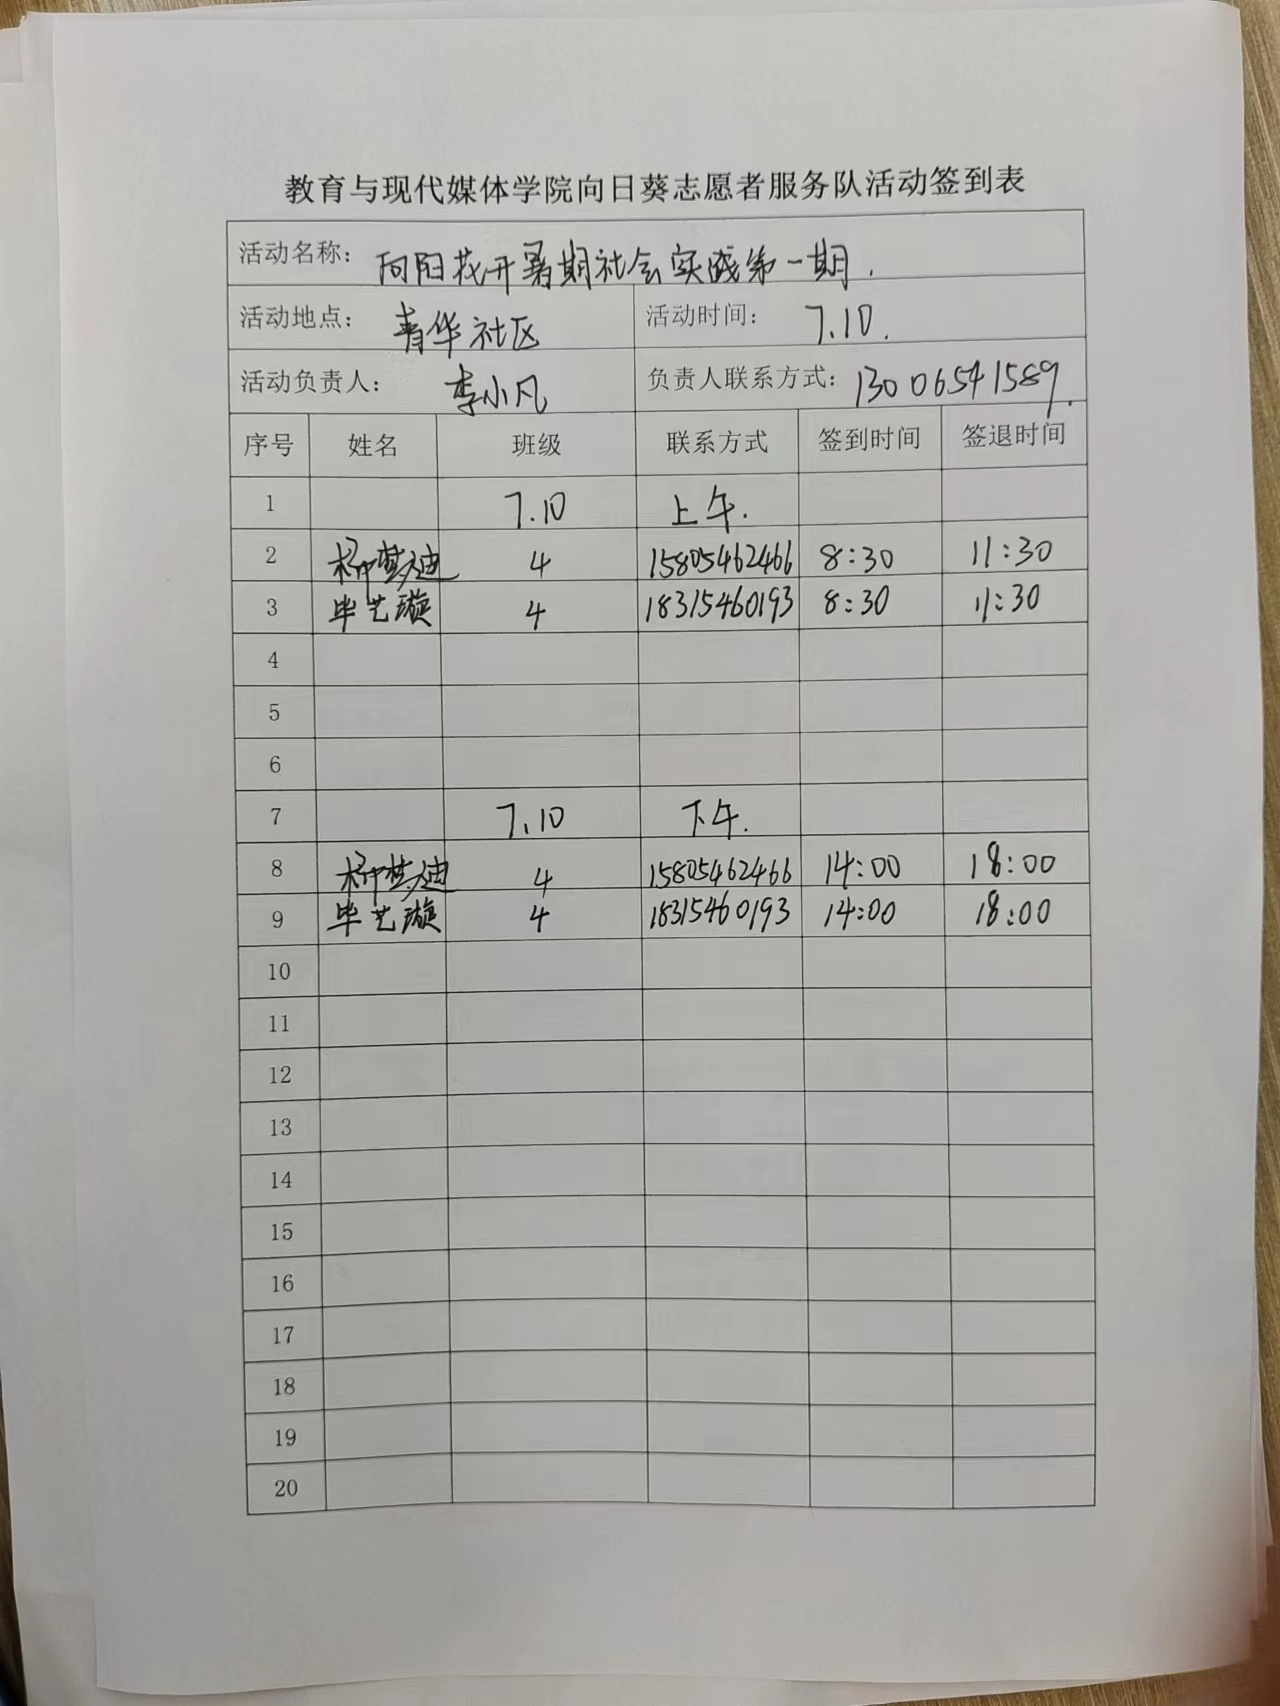 教育与现代媒体学院向日葵志愿者服务队活动签到表
活动名称： 向阳花开暑期社会实践第一期.
活动地点： 青华社区 活动时间： 7.10.
活动负责人： 李小凡 负责人联系方式：13006541589.
序号 姓名 班级 联系方式 签到时间 签退时间
1 7.10 上午.
2 柳梦迪 4 15805462466 8:30 11:30
3 毕艺璇 4 18315460193 8:30 11:30
4
5
6
7 7.10 下午.
8 柳梦迪 4 15805462466 14:00 18:00
9 毕艺璇 4 18315460193 14:00 18:00
10
11
12
13
14
15
16
17
18
19
20